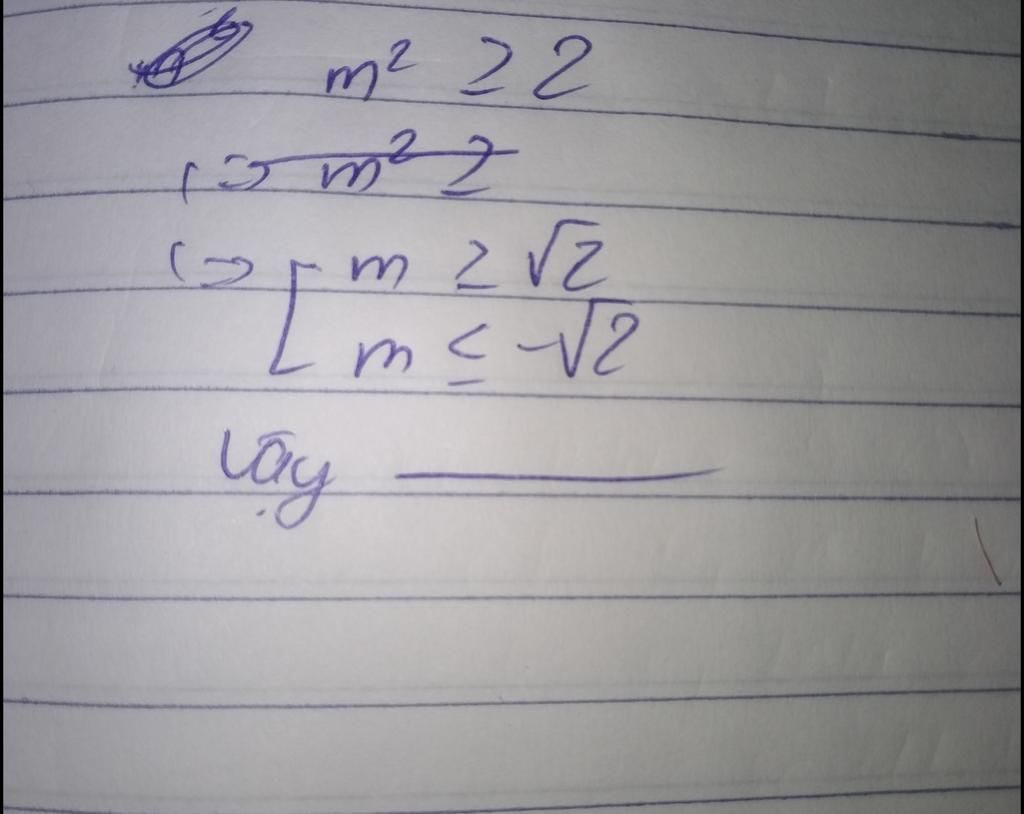 m² ≥ 2
⇔ m² ≥
⇔ [ m ≥ √2
m ≤ -√2
Vậy